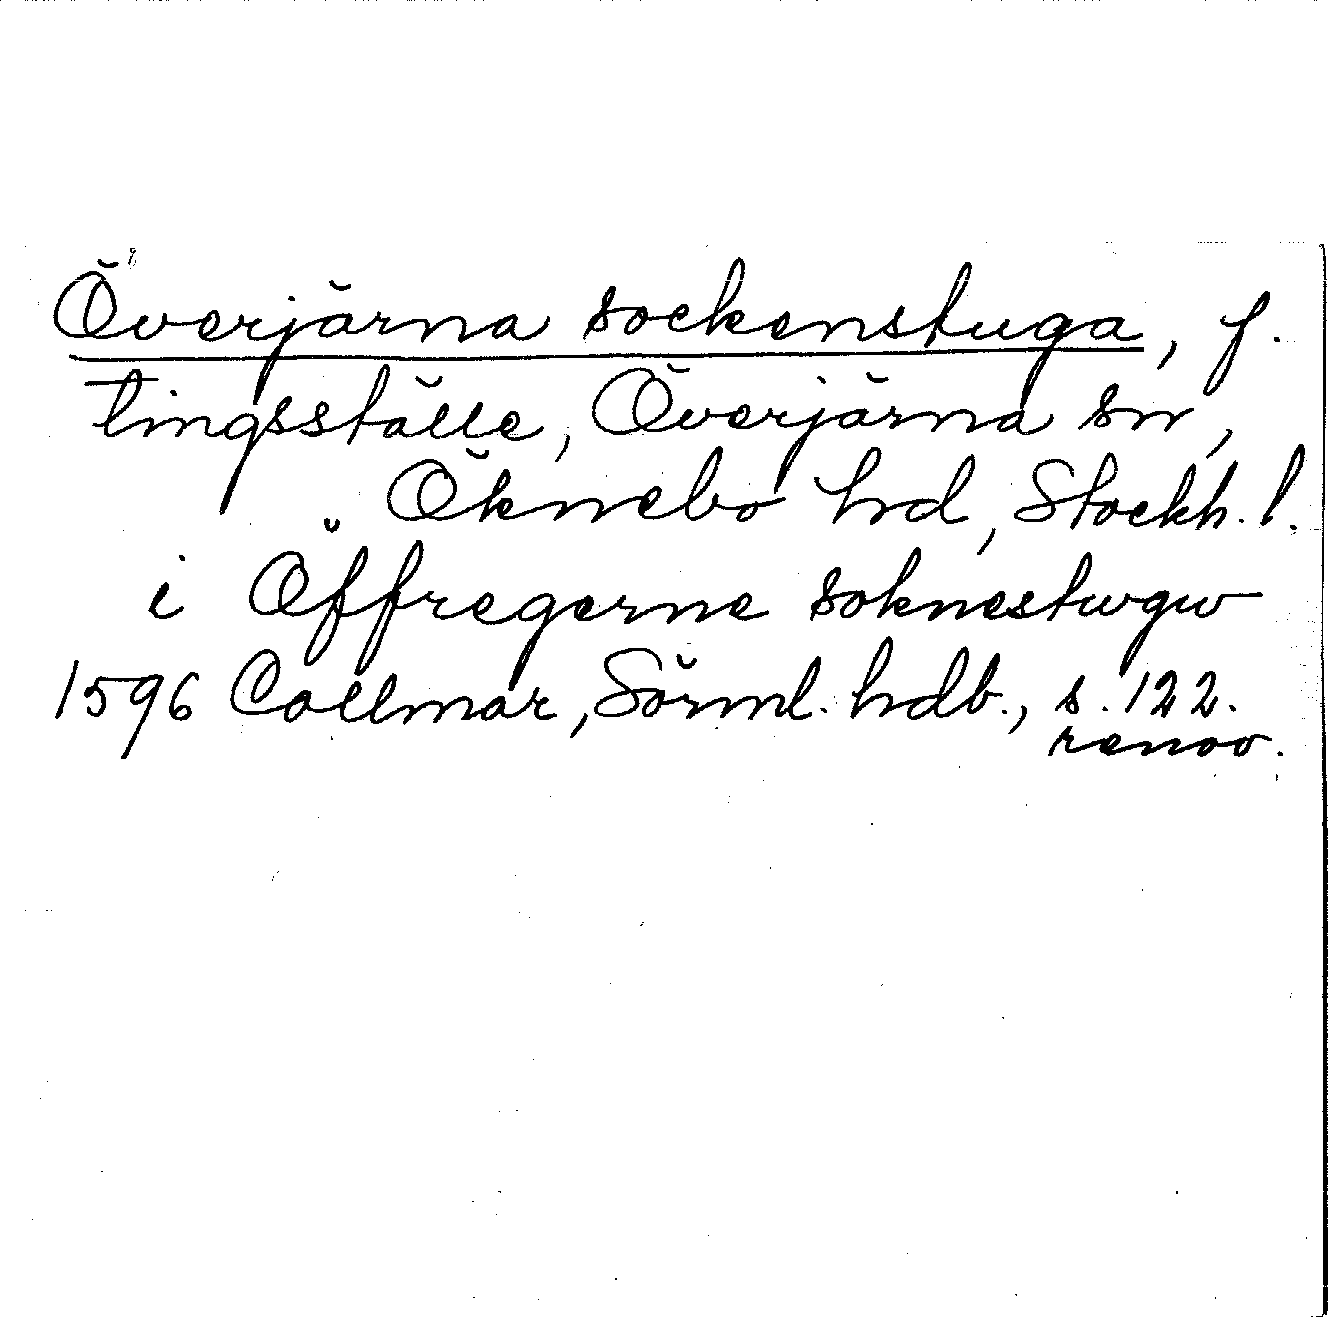 Överjärna sockenstuga, f.
tingsställe, Överjärna sn,
Öknebo hd, Stockh. l.
i Öffregerne soknestwgw
1596 Collmar, Sörml. hdb., s. 122.
renov.